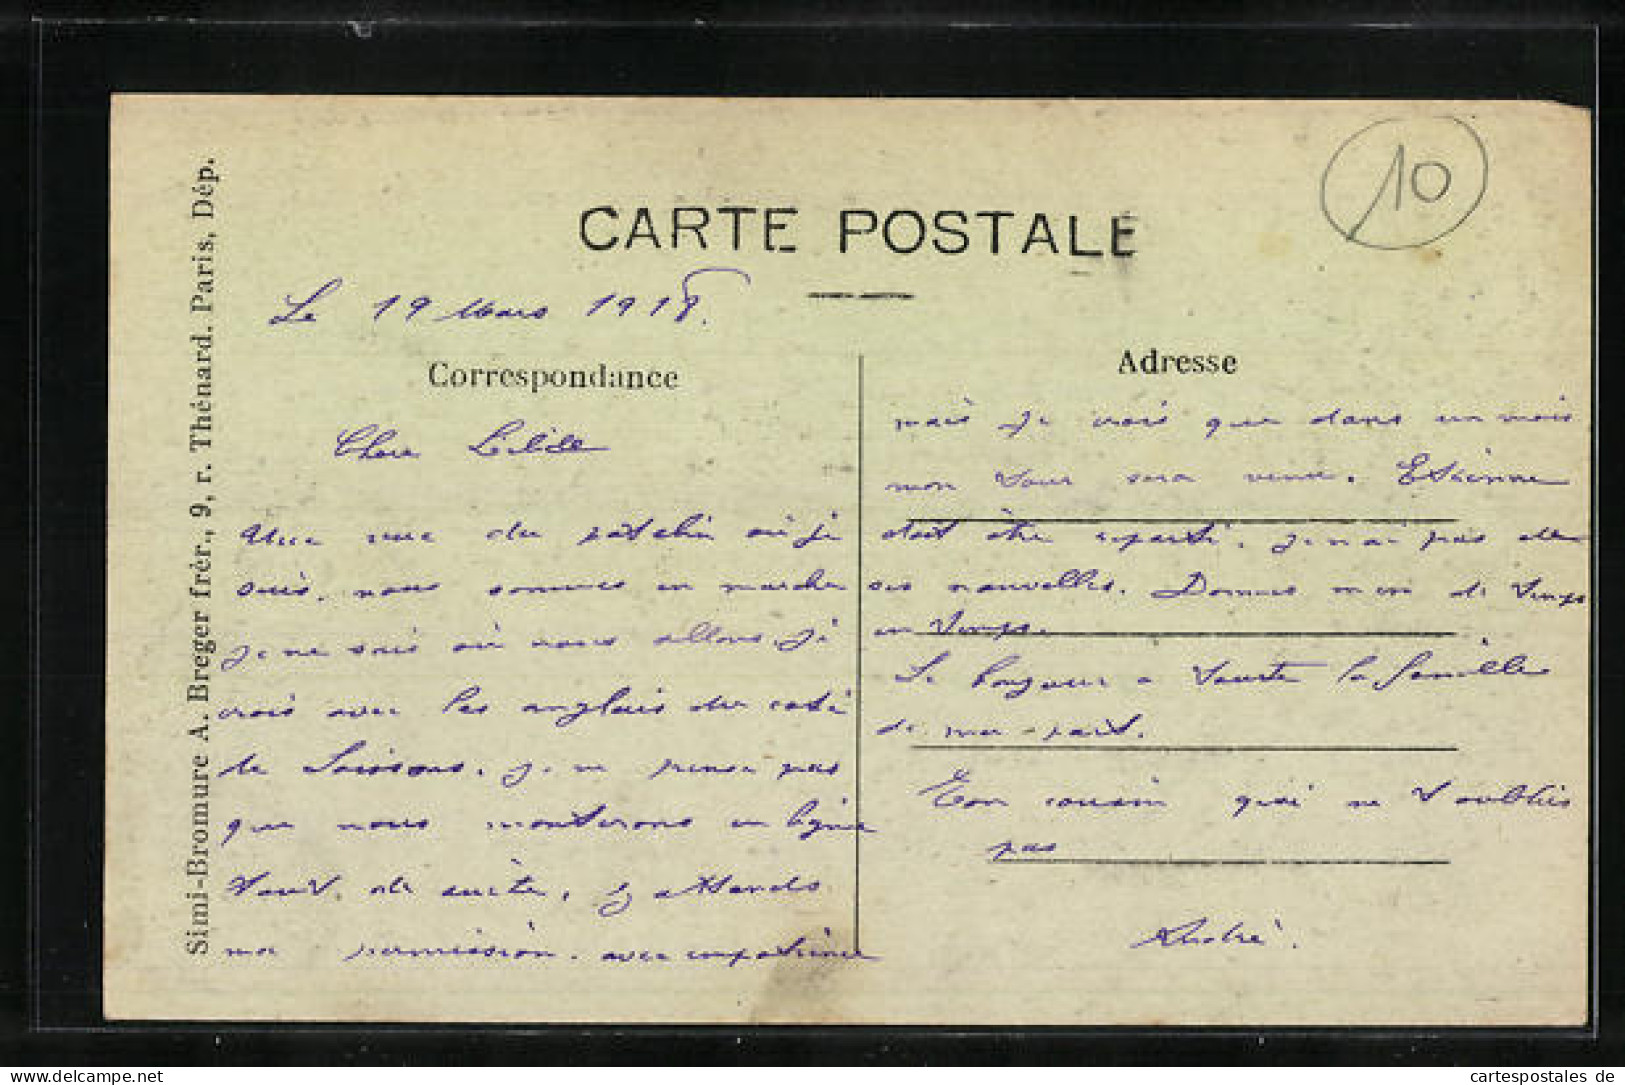 CARTE POSTALE
10
Le 19 Mars 1918.
Correspondance
Chere
Une vue du patelin où je
suis. nous sommes en marche
je ne sais où nous allons. je
crois avec les anglais du coté
de Soissons. je ne pense pas
que nous monterons en ligne
tout de suite, j attends
ma permission. avec impatience
Adresse
mais je crois que dans un mois
mon tour sera venu. Etienne
doit être reparti. je n ai pas de
ses nouvelles. Donnes m en de temps
en temps.
Le bonjour a toute la famille
de ma part.
Ton cousin qui ne t oublies
pas
André.
Simi-Bromure A. Breger frèr., 9, r. Thénard. Paris, Dép.
delcampe.net
cartespostales de